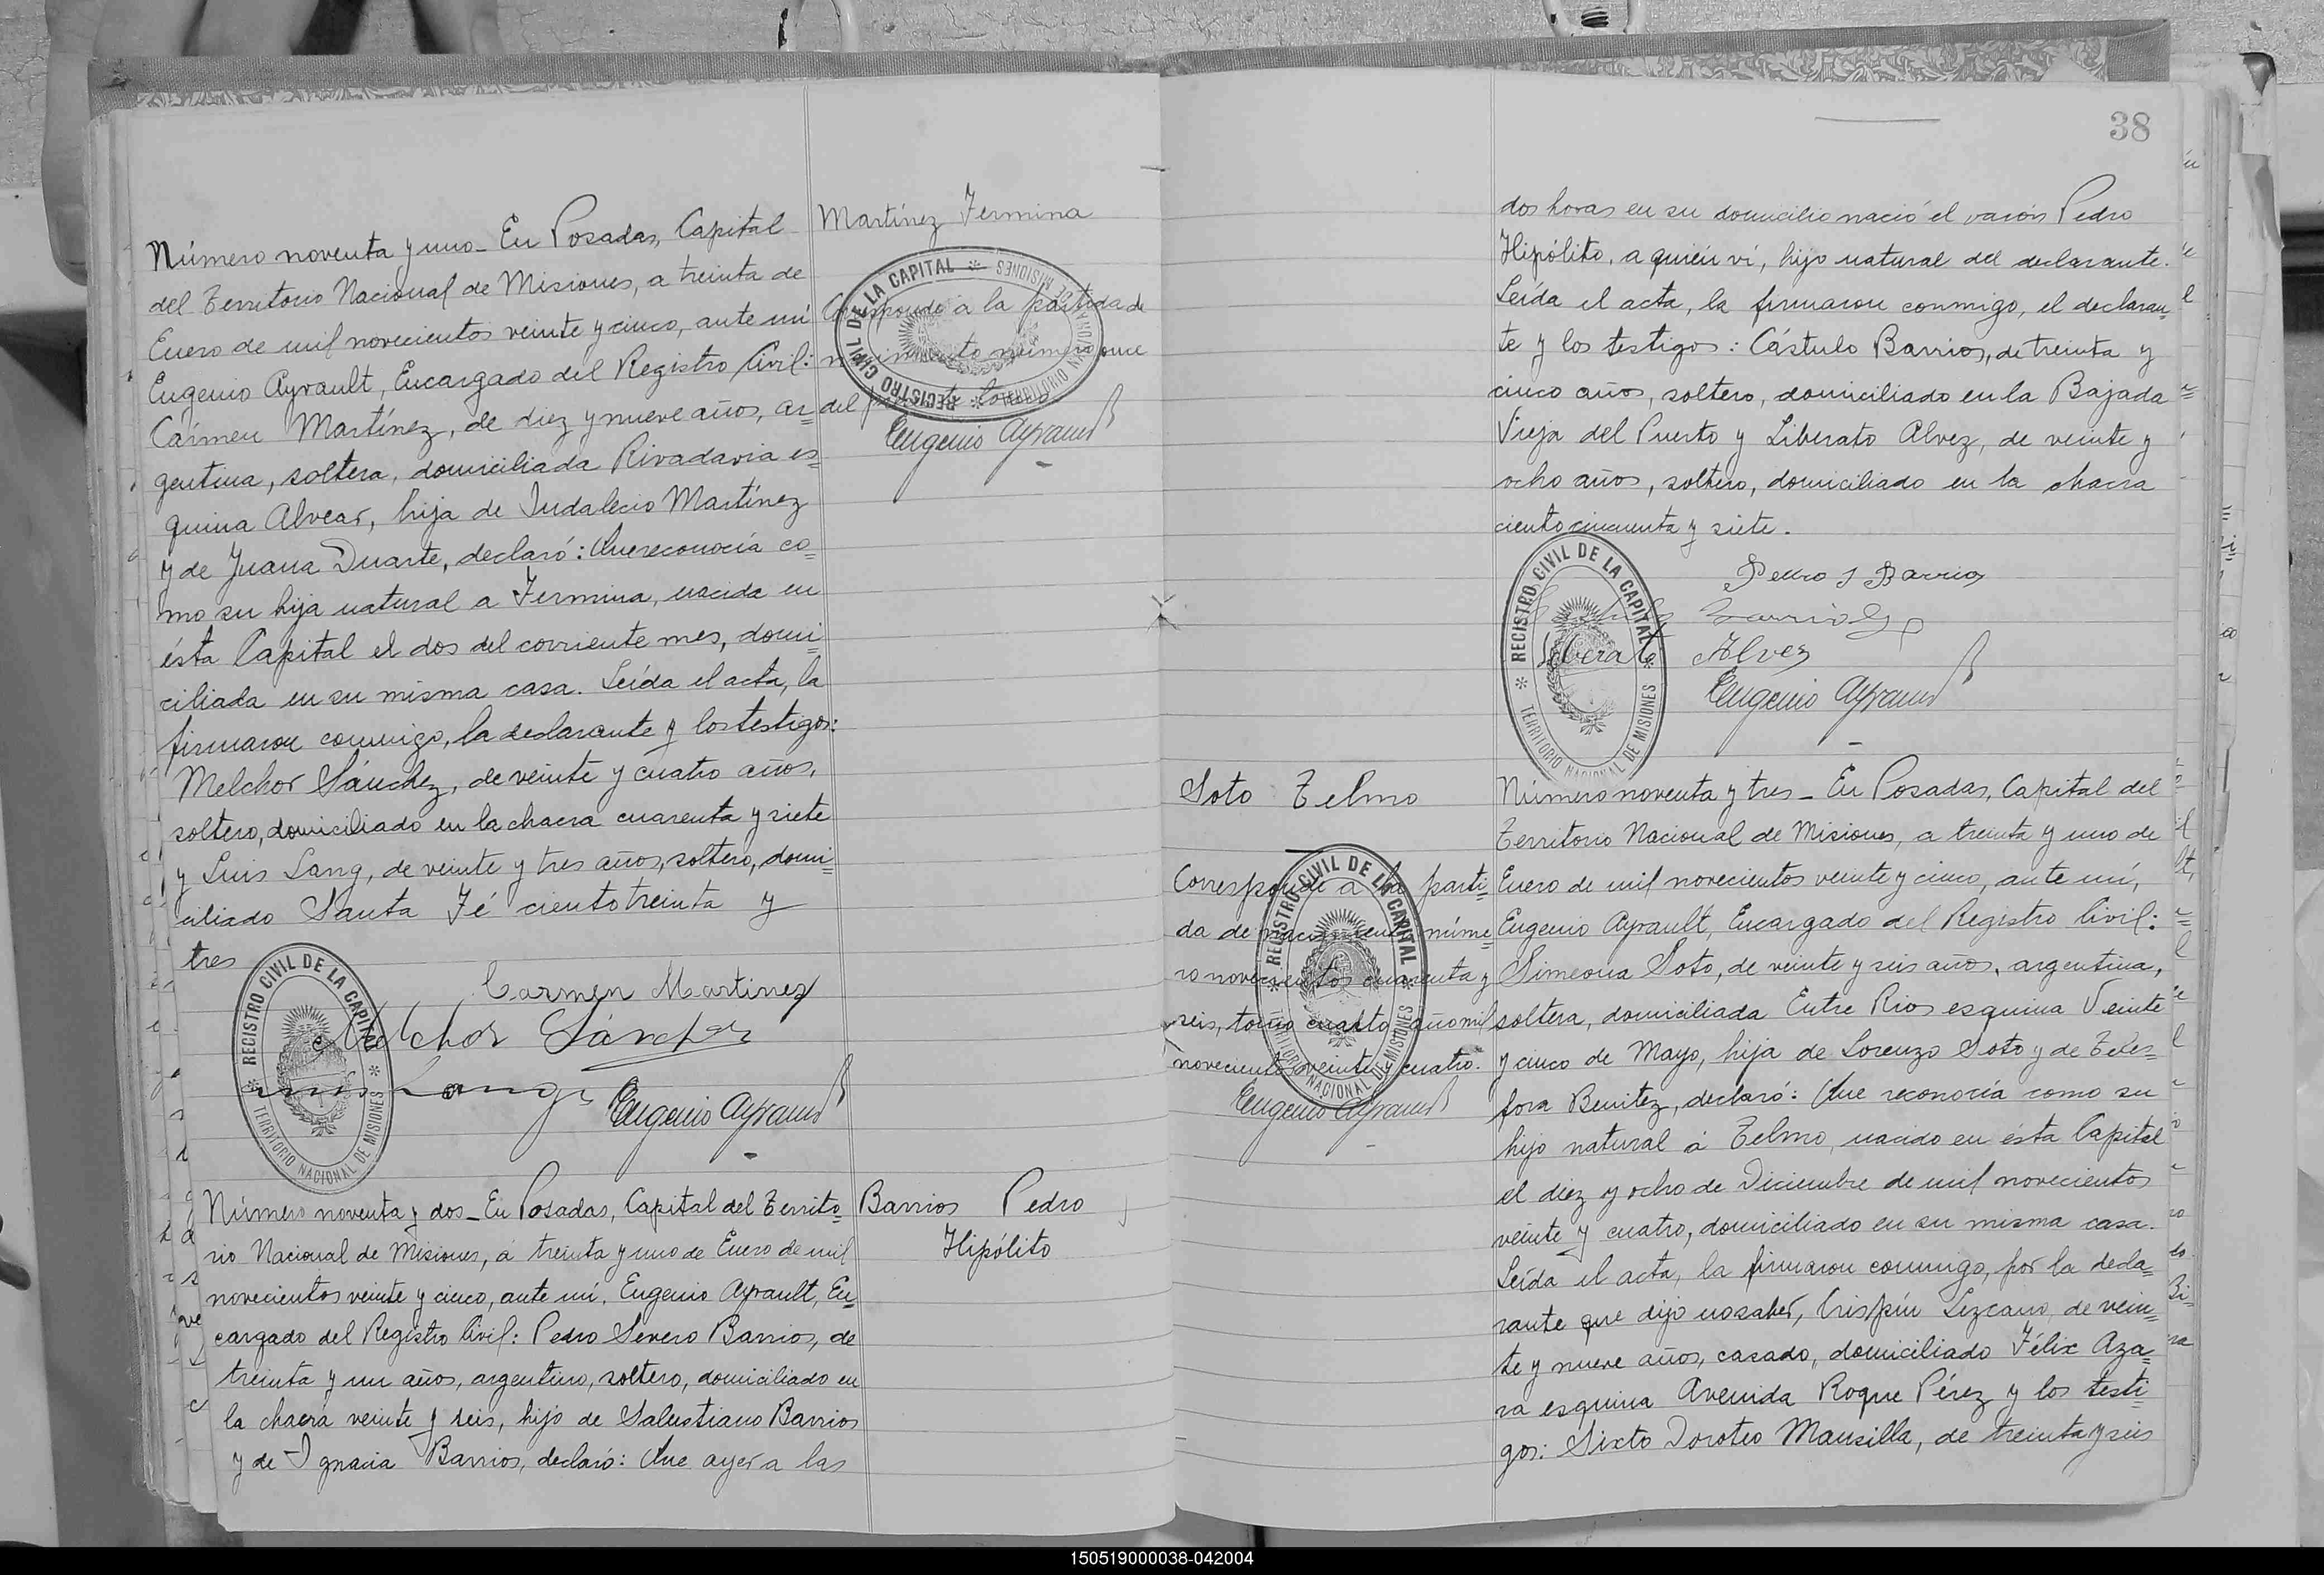 Número noventa y uno_ En Posadas, Capital
del Territorio Nacional de Misiones, a treinta de
Enero de mil novecientos veinte y cinco, ante mí
Eugenio Ayrault, Encargado del Registro Civil:
Carmen Martínez, de diez y nueve años, ar=
gentina, soltera, domiciliada Rivadavia es=
quina Alvear, hija de Indalecio Martínez
y de Juana Duarte, declaró: Que reconocía co=
mo su hija natural a Fermina, nacida en
ésta Capital el dos del corriente mes, domi=
ciliada en su misma casa. Leída el acta, la
firmaron conmigo, la declarante y los testigos:
Melchor Sánchez, de veinte y cuatro años,
soltero, domiciliado en la chacra cuarenta y siete
y Luis Lang, de veinte y tres años, soltero, domi=
ciliado Santa Fé ciento treinta y
tres
Carmen Martinez
Melchor Sánchez
Luis Lang
Eugenio Ayrault
REGISTRO CIVIL DE LA CAPITAL
TERRITORIO NACIONAL DE MISIONES
Martínez Fermina
Corresponde a la partida de
nacimiento número once
del
Eugenio Ayrault
REGISTRO CIVIL DE LA CAPITAL
TERRITORIO NACIONAL DE MISIONES
Número noventa y dos_ En Posadas, Capital del Territo=
rio Nacional de Misiones, á treinta y uno de Enero de mil
novecientos veinte y cinco, ante mí, Eugenio Ayrault, En=
cargado del Registro Civil: Pedro Severo Barrios, de
treinta y un años, argentino, soltero, domiciliado en
la chacra veinte y seis, hijo de Salustiano Barrios
y de Ignacia Barrios, declaró: Que ayer a las
Barrios Pedro
Hipólito
38
dos horas en su domicilio nació el varón Pedro
Hipólito, a quién ví, hijo natural del declarante.
Leída el acta, la firmaron conmigo, el declaran=
te y los testigos: Cástulo Barrios, de treinta y
cinco años, soltero, domiciliado en la Bajada
Vieja del Puerto y Liberato Alvez, de veinte y
ocho años, soltero, domiciliado en la chacra
ciento cincuenta y siete.
Pedro S Barrios
Barrios
Liberato Alvez
Eugenio Ayrault
REGISTRO CIVIL DE LA CAPITAL
TERRITORIO NACIONAL DE MISIONES
Soto Telmo
Corresponde a la parti=
da de nacimiento núme=
ro novecientos cuarenta y
seis, tomo cuarto año mil
novecientos veinte y cuatro.
Eugenio Ayrault
REGISTRO CIVIL DE LA CAPITAL
TERRITORIO NACIONAL DE MISIONES
Número noventa y tres_ En Posadas, Capital del
Territorio Nacional de Misiones, a treinta y uno de
Enero de mil novecientos veinte y cinco, ante mí,
Eugenio Ayrault, Encargado del Registro Civil:
Simeona Soto, de veinte y seis años, argentina,
soltera, domiciliada Entre Rios esquina Veinte
y cinco de Mayo, hija de Lorenzo Soto y de Teles=
fora Benitez, declaró: Que reconocía como su
hijo natural á Telmo, nacido en ésta Capital
el diez y ocho de Diciembre de mil novecientos
veinte y cuatro, domiciliado en su misma casa.
Leída el acta, la firmaron conmigo, por la decla=
rante que dijo no saber, Crispín Lezcano, de vein=
te y nueve años, casado, domiciliado Félix Aza=
ra esquina Avenida Roque Pérez y los testi=
gos: Sixto Doroteo Mansilla, de treinta y seis
150519000038-042004